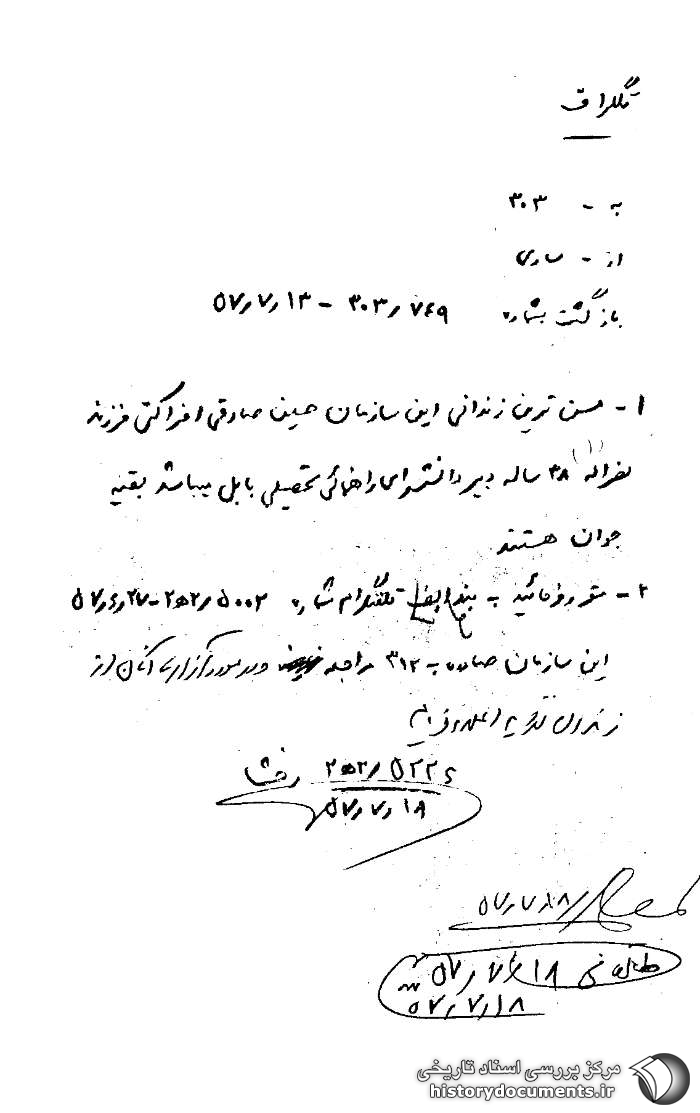 تلگراف
به - ۳۰۳
از - ساری
بازگشت بشماره ۳۰۳/۷۴۹ - ۵۷/۷/۱۳
۱- مسن ترین زندانی این سازمان حسین صادقی افراکتی فرزند
نصراله (۱) ۳۸ ساله دبیر دانشسرای راهنمائی تحصیلی بابل میباشد بقیه
جوان هستند
۲- مقرر فرمائید به بند تلگرام شماره ۲ﻫ۲/۵۰۰۲-۵۷/۶/۲۷
این سازمان صادره به ۳۱۲ مراجعه و در مورد آزادی آنان از
زندان
۲ﻫ۲/۵۲۲۶
۵۷/۷/۱۸
۵۷/۷/۱۸
۵۷/۷/۱۸
۵۷/۷/۱۸
مرکز بررسی اسناد تاریخی
historydocuments.ir